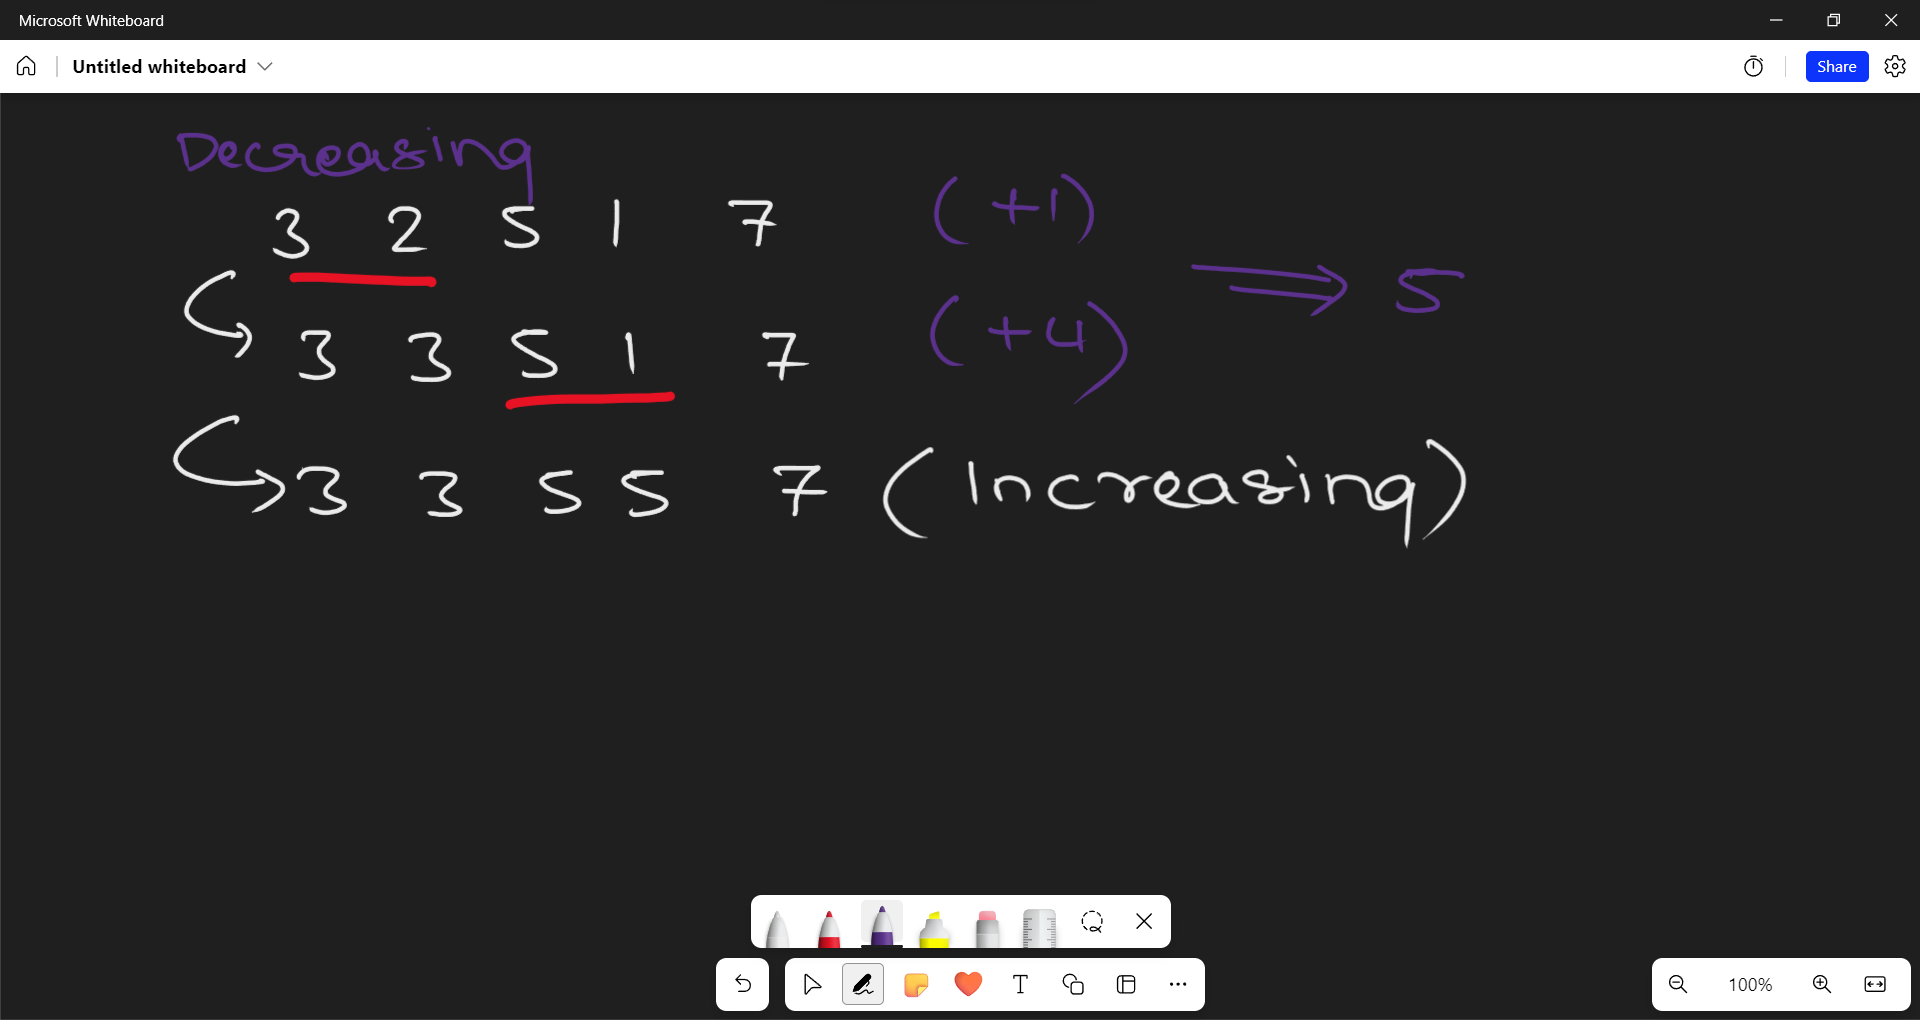 Microsoft Whiteboard
Untitled whiteboard
Share
Decreasing
3 2 5 1 7 (+1)
⇒ 5
3 3 5 1 7 (+4)
3 3 5 5 7 (Increasing)
T
100%